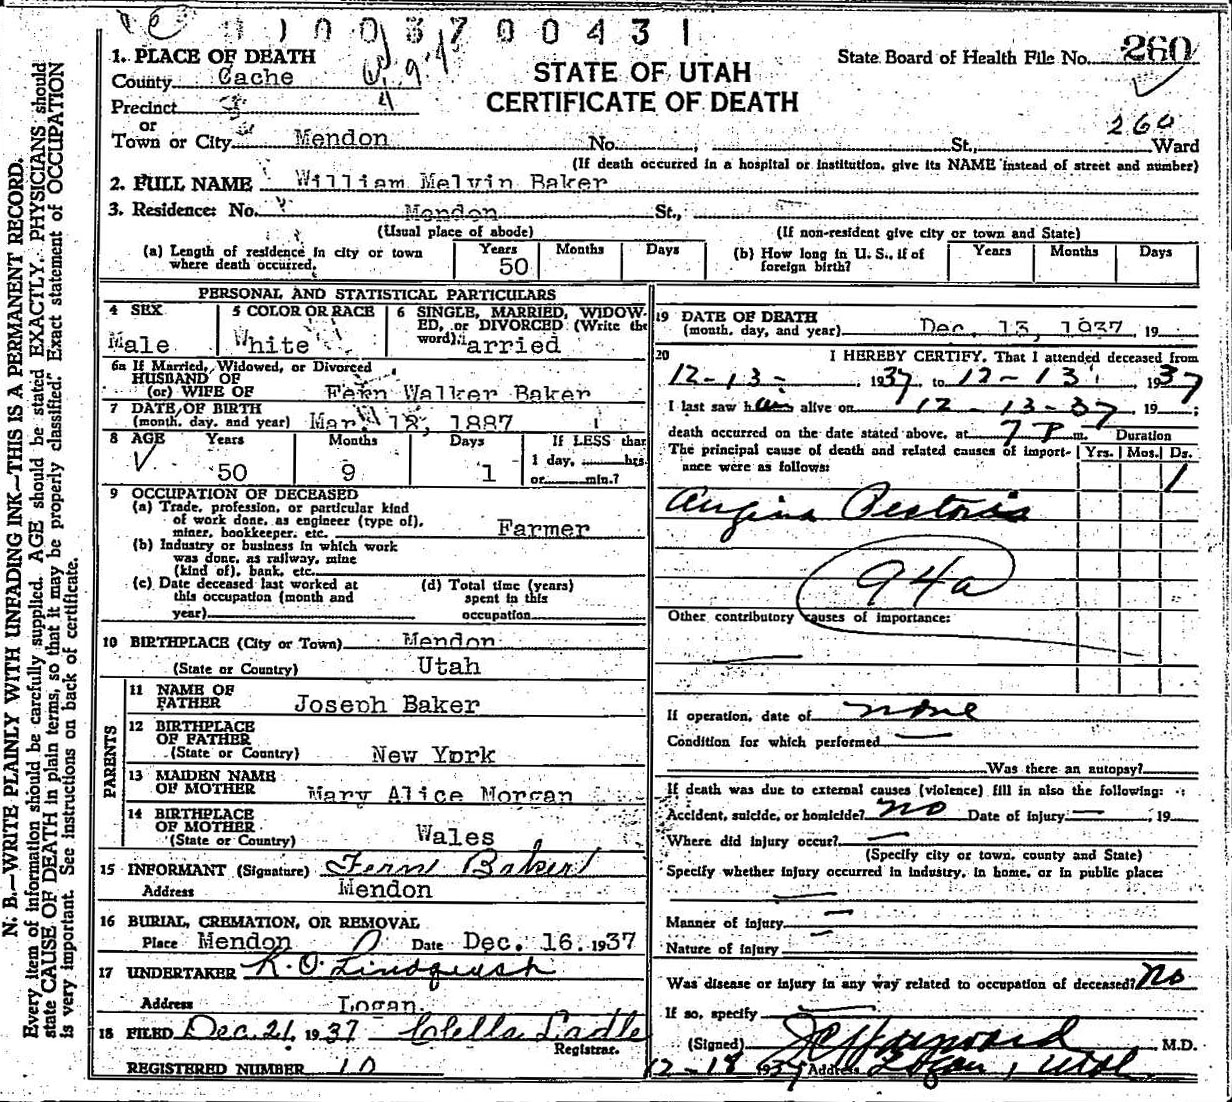 1003700431
1. PLACE OF DEATH
County Cache
Precinct
or
Town or City Mendon No. St., Ward
STATE OF UTAH
CERTIFICATE OF DEATH
State Board of Health File No. 260
260
(If death occurred in a hospital or institution, give its NAME instead of street and number)
2. FULL NAME William Melvin Baker
3. Residence: No. Mendon St.,
(Usual place of abode) (If non-resident give city or town and State)
(a) Length of residence in city or town where death occurred. Years 50 Months Days
(b) How long in U. S., if of foreign birth? Years Months Days
PERSONAL AND STATISTICAL PARTICULARS
4 SEX Male
5 COLOR OR RACE White
6 SINGLE, MARRIED, WIDOWED, or DIVORCED (Write the word) arried
6a If Married, Widowed, or Divorced
HUSBAND OF
(or) WIFE OF Fern Walker Baker
7 DATE OF BIRTH
(month, day, and year) Mar. 12, 1887
8 AGE Years 50 Months 9 Days 1
If LESS than 1 day, hrs. or min.?
9 OCCUPATION OF DECEASED
(a) Trade, profession, or particular kind
of work done, as engineer (type of),
miner, bookkeeper, etc. Farmer
(b) Industry or business in which work
was done, as railway, mine
(kind of), bank, etc.
(c) Date deceased last worked at
this occupation (month and
year)
(d) Total time (years)
spent in this
occupation
10 BIRTHPLACE (City or Town) Mendon
(State or Country) Utah
PARENTS
11 NAME OF
FATHER Joseph Baker
12 BIRTHPLACE
OF FATHER
(State or Country) New York
13 MAIDEN NAME
OF MOTHER Mary Alice Morgan
14 BIRTHPLACE
OF MOTHER
(State or Country) Wales
15 INFORMANT (Signature) Fern Baker
Address Mendon
16 BURIAL, CREMATION, OR REMOVAL
Place Mendon Date Dec. 16, 1937
17 UNDERTAKER R. O. Lindquish
Address Logan.
18 FILED Dec. 21, 1937 Clella Ladle
Registrar.
REGISTERED NUMBER 10
19 DATE OF DEATH
(month, day, and year) Dec. 13, 1937, 19
20 I HEREBY CERTIFY, That I attended deceased from
12-13-, 1937, to 12-13, 1937
I last saw h alive on 12-13-37, 19 ;
death occurred on the date stated above, at 7 P m. Duration
The principal cause of death and related causes of importance were as follows: Yrs. Mos. Ds.
1
Angina Pectoris
94a
Other contributory causes of importance:
If operation, date of none
Condition for which performed
Was there an autopsy?
If death was due to external causes (violence) fill in also the following:
Accident, suicide, or homicide? no Date of injury — , 19
Where did injury occur? —
(Specify city or town, county and State)
Specify whether injury occurred in industry, in home, or in public place:
—
Manner of injury —
Nature of injury —
Was disease or injury in any way related to occupation of deceased? No
If so, specify —
(Signed) M.D.
12-18 1937 Address Logan, Utah
N. B.—WRITE PLAINLY WITH UNFADING INK—THIS IS A PERMANENT RECORD.
Every item of information should be carefully supplied. AGE should be stated EXACTLY. PHYSICIANS should
state CAUSE OF DEATH in plain terms, so that it may be properly classified. Exact statement of OCCUPATION
is very important. See instructions on back of certificate.